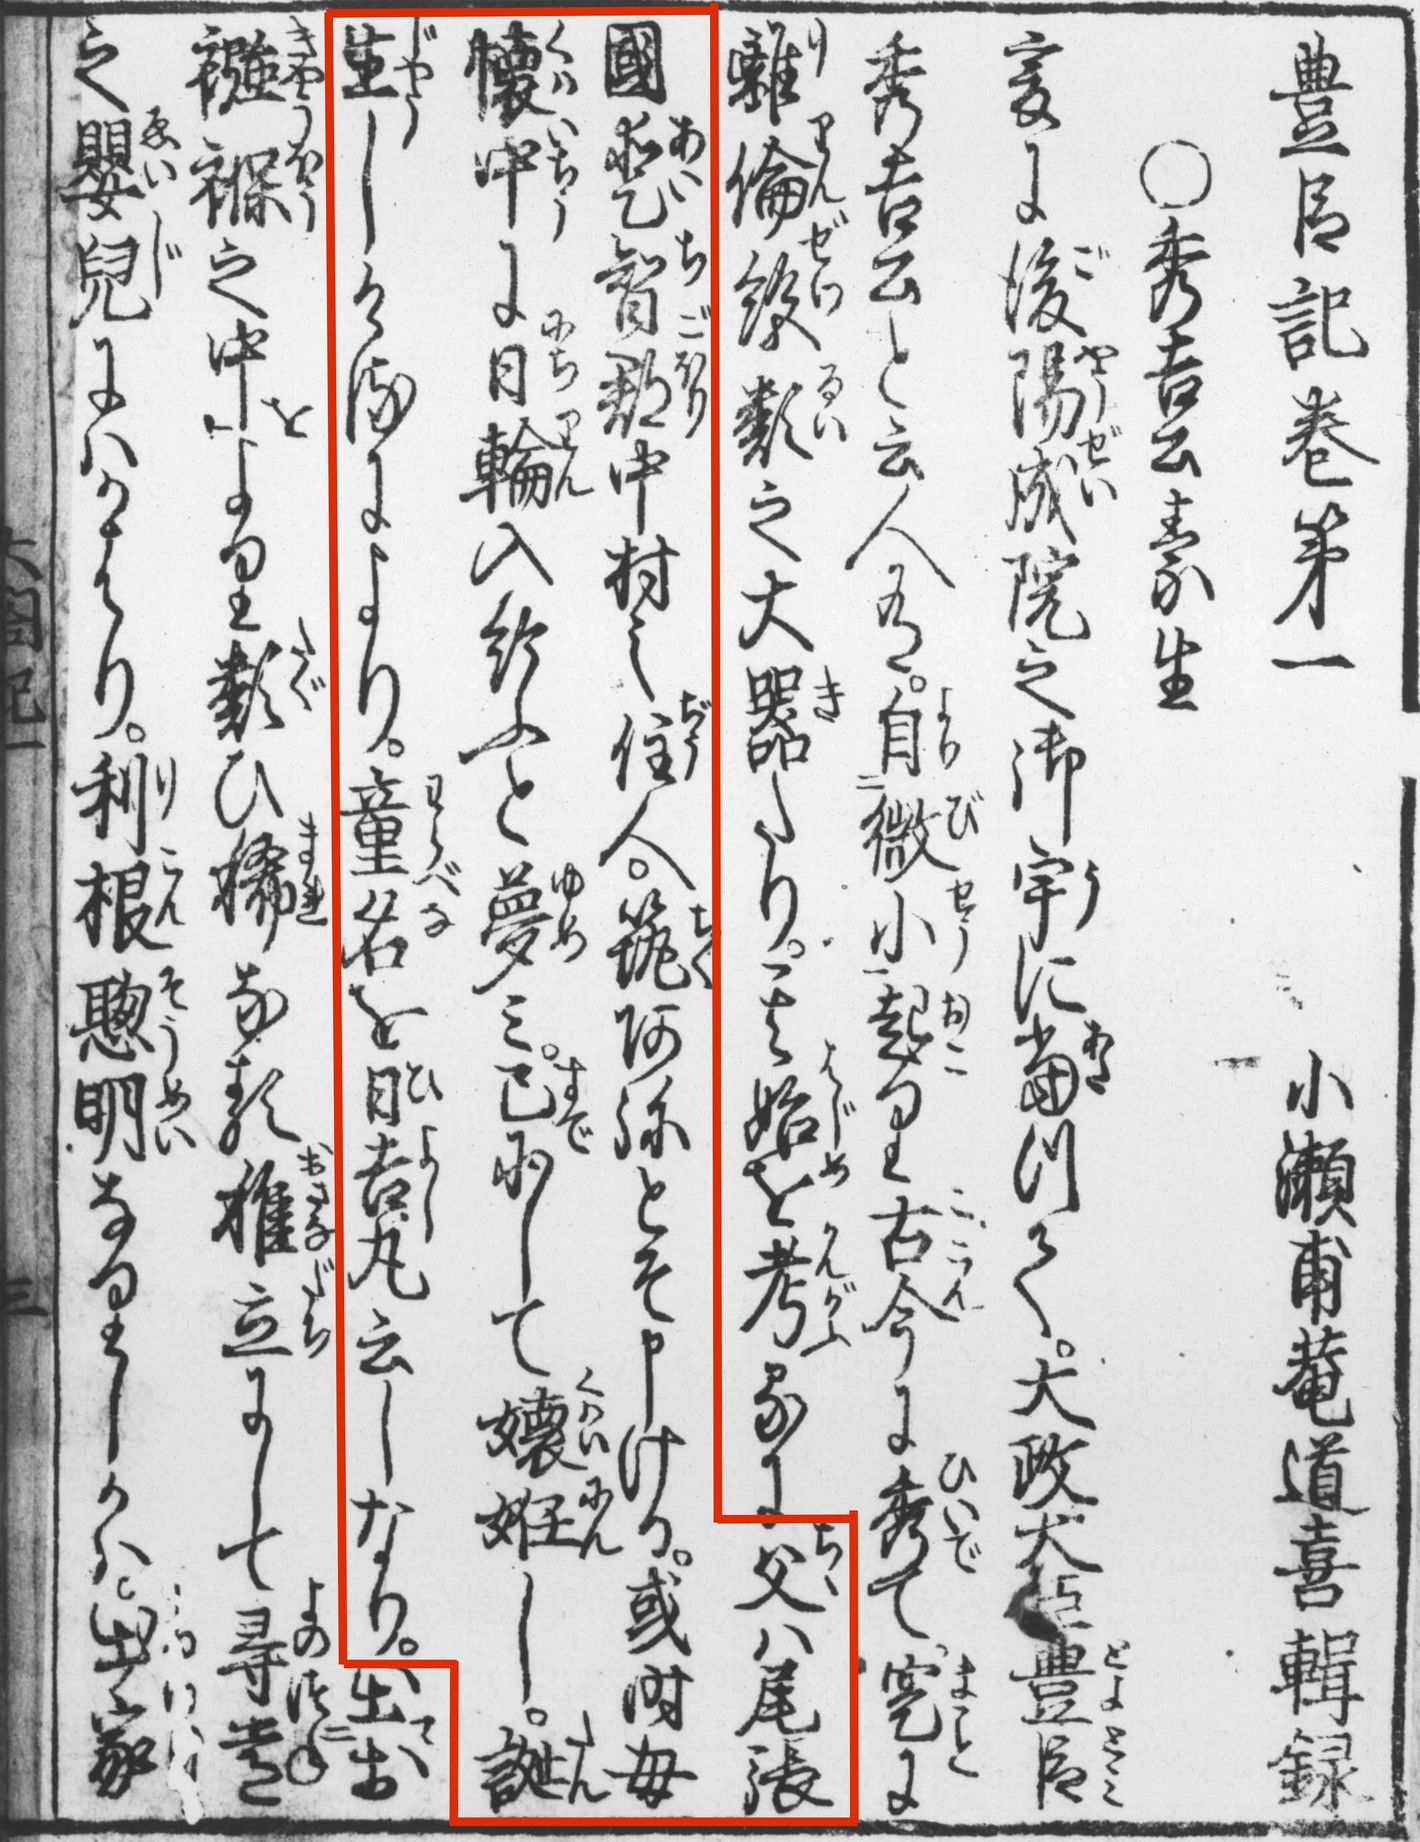 豊臣記巻第一　小瀬甫菴道喜輯録
○秀吉公素生
爰に後陽成院之御宇に当つて。大政大臣豊臣
秀吉公と云人有。自微小起り古今に秀て寔に
離倫絶類之大器たり。其始を考るに父ハ尾張
國愛智郡中村之住人。筑阿弥とそ申ける。或時母
懐中に日輪入給ふと夢ミ。已にして懐妊し。誕
生しける故により。童名を日吉丸云しなり。出
襁褓之中より類ひ稀なる稚立にして尋常
之嬰兒にハかはり。利根聰明なりしかハ。